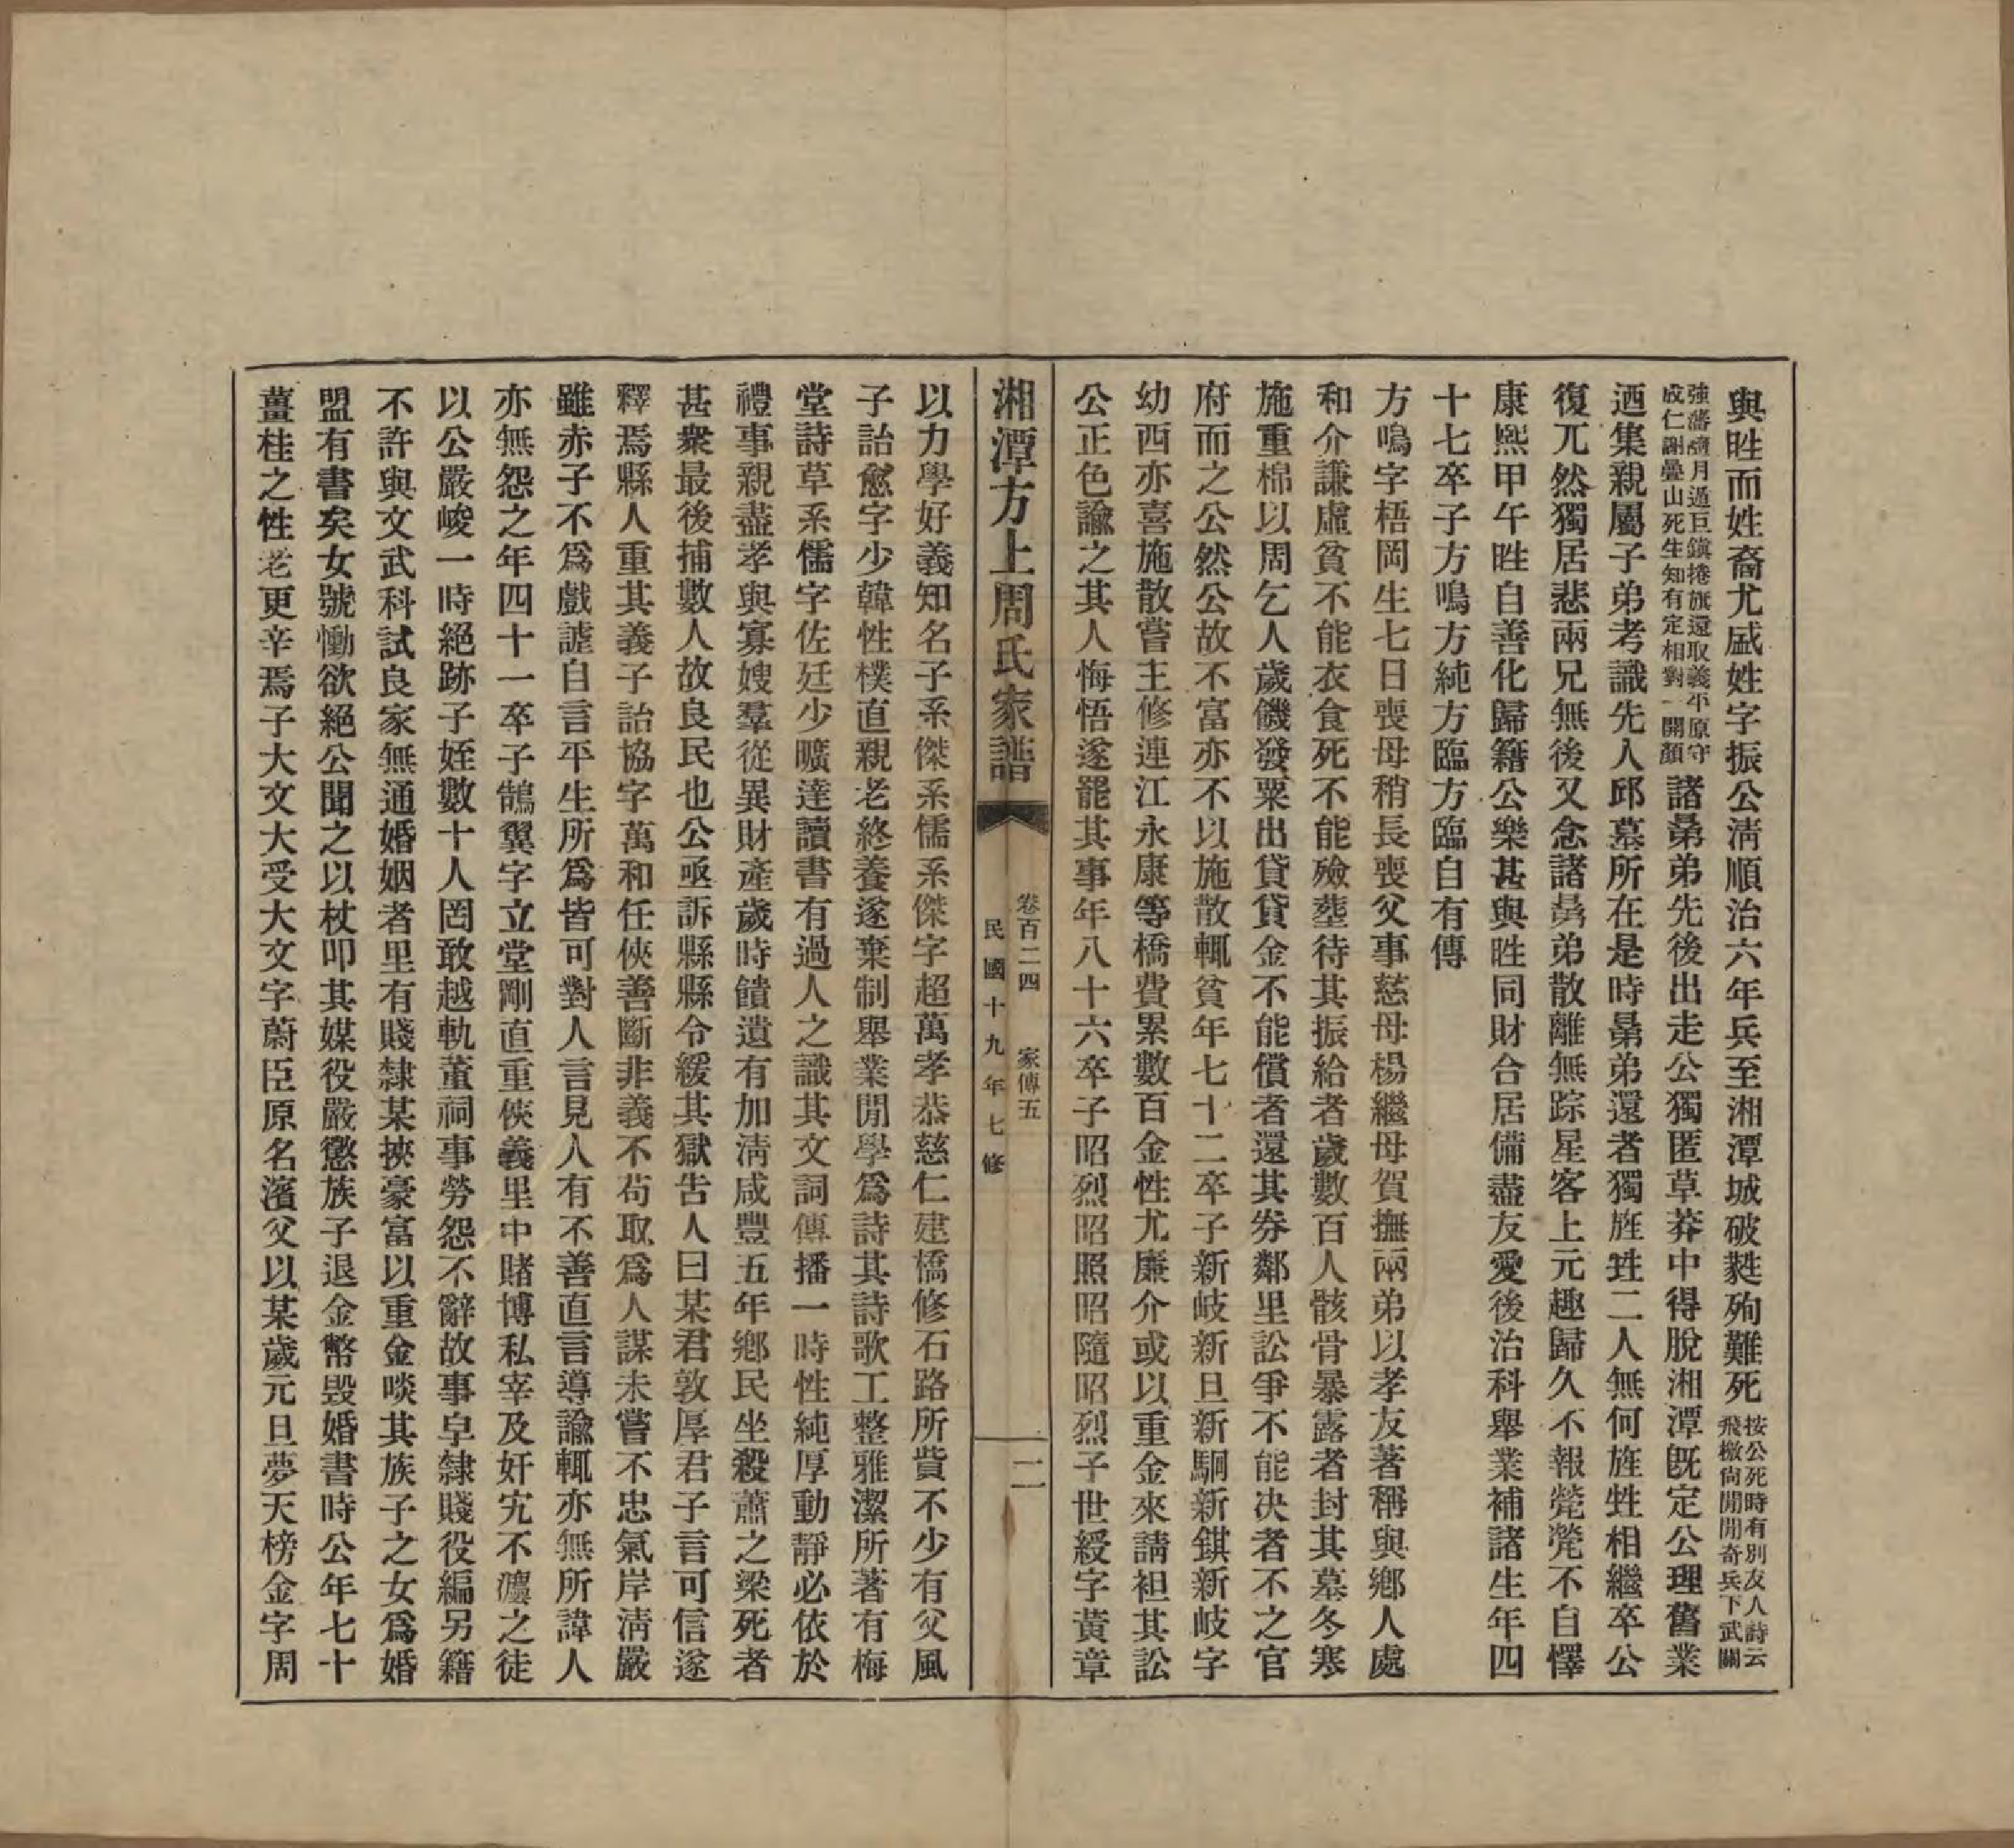 與甡而姓裔尤盛姓字振公淸順治六年兵至湘潭城破甤殉難死按公死時有別友人詩云飛檄尙聞開奇兵下武關
強藩壖月過巨鎭捲旗還取義平原守成仁謝疊山死生知有定相對一開顏諸晜弟先後出走公獨匿草莽中得脫湘潭旣定公理舊業
迺集親屬子弟考識先人邱墓所在是時晜弟還者獨旌甡二人無何旌甡相繼卒公
復兀然獨居悲兩兄無後又念諸晜弟散離無踪星客上元趣歸久不報煢煢不自懌
康熙甲午甡自善化歸籍公樂甚與甡同財合居備盡友愛後治科舉業補諸生年四
十七卒子方鳴方純方臨方臨自有傳
方鳴字梧岡生七日喪母稍長喪父事慈母楊繼母賀撫兩弟以孝友著稱與鄕人處
和介謙虛貧不能衣食死不能殮塟待其振給者歲數百人骸骨暴露者封其墓冬寒
施重棉以周乞人歲饑發粟出貸貸金不能償者還其券鄰里訟爭不能決者不之官
府而之公然公故不富亦不以施散輒貧年七十二卒子新岐新旦新駉新錤新岐字
幼西亦喜施散嘗主修連江永康等橋費累數百金性尤廉介或以重金來請袒其訟
公正色諭之其人悔悟遂罷其事年八十六卒子昭烈昭照昭隨昭烈子世綬字黄章
湘潭方上周氏家譜 卷百二四 家傳五 民國十九年七修 二
以力學好義知名子系傑系儒系傑字超萬孝恭慈仁建橋修石路所貲不少有父風
子詒愈字少韓性樸直親老終養遂棄制舉業閒學爲詩其詩歌工整雅潔所著有梅
堂詩草系儒字佐廷少曠達讀書有過人之識其文詞傳播一時性純厚動靜必依於
禮事親盡孝與寡嫂羣從異財產歲時饋遺有加淸咸豐五年鄕民坐殺蕭之梁死者
甚衆最後捕數人故良民也公亟訴縣縣令緩其獄告人曰某君敦厚君子言可信遂
釋焉縣人重其義子詒協字萬和任俠善斷非義不苟取爲人謀未嘗不忠氣岸淸嚴
雖赤子不爲戲謔自言平生所爲皆可對人言見人有不善直言導諭輒亦無所諱人
亦無怨之年四十一卒子鵠翼字立堂剛直重俠義里中賭博私宰及奸宄不灋之徒
以公嚴峻一時絕跡子姪數十人罔敢越軌董祠事勞怨不辭故事皁隸賤役編另籍
不許與文武科試良家無通婚姻者里有賤隸某挾豪富以重金啖其族子之女爲婚
盟有書矣女號慟欲絕公聞之以杖叩其媒役嚴懲族子退金幣毁婚書時公年七十
薑桂之性老更辛焉子大文大受大文字蔚臣原名濱父以某歲元旦夢天榜金字周